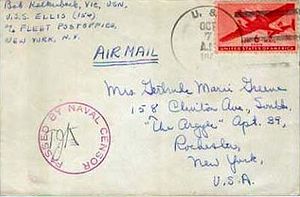 Bob Kalkenback, Y1C, USN,
U.S.S. ELLIS (154)
℅ FLEET POSTOFFICE,
NEW YORK, N.Y.
AIR MAIL
U. S.
OCT
7
A.M.
UNITED STATES OF AMERICA
PASSED BY NAVAL CENSOR
Mrs. Gertrude Marie Greene
158 Clinton Ave., South,
"The Argyle" Apt. 39,
Rochester,
New York,
U.S.A.